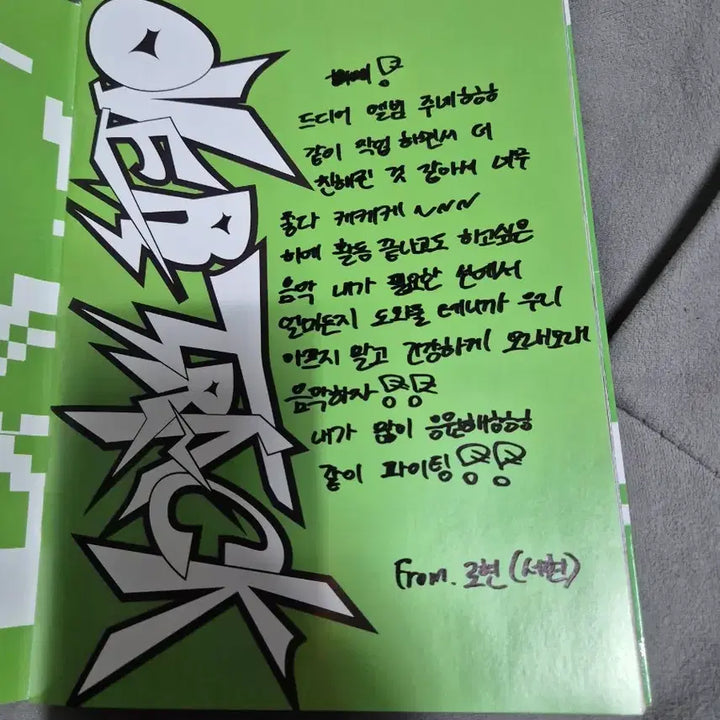 OVERTRACK
하예
드디어 앨범 주네ㅎㅎㅎ
같이 작업 하면서 더
친해진 것 같아서 너무
좋다 케케케 ~~~
하예 활동 끝나고도 하고싶은
음악 내가 필요한 씬에서
얼마든지 도와줄 테니까 우리
아프지 말고 건강하게 오래오래
음악하자
내가 많이 응원해ㅎㅎㅎ
같이 파이팅
From. 로현(세현)